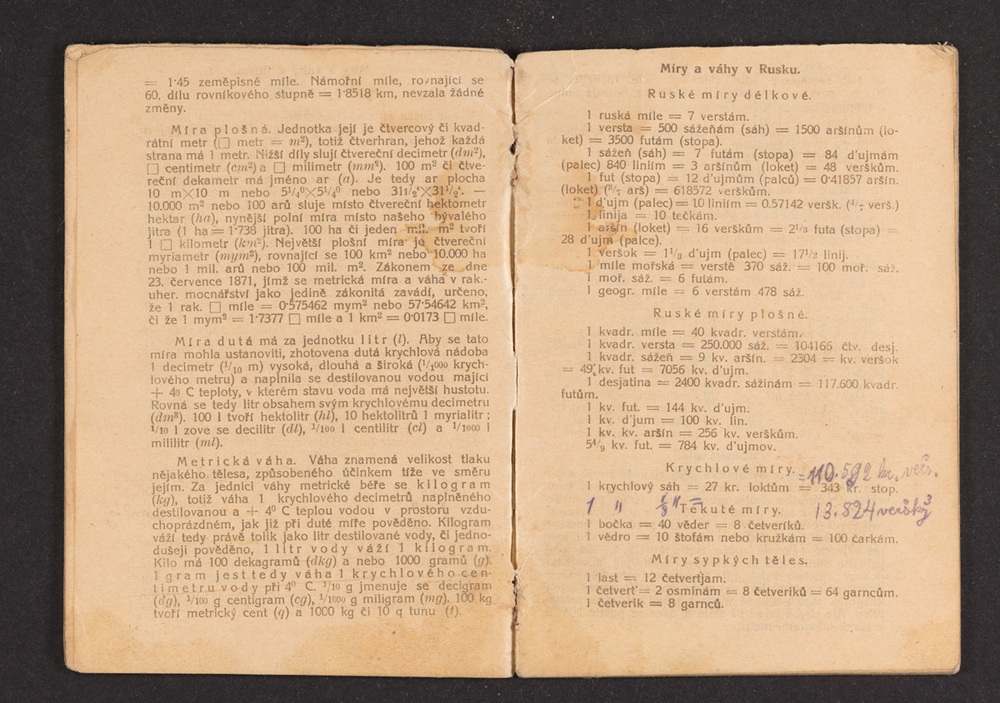 = 1·45 zeměpisné míle. Námořní míle, rovnající se
60. dílu rovníkového stupně = 1·8518 km, nevzala žádné
změny.
Míra plošná. Jednotka její je čtvercový či kvad-
rátní metr (□ metr = m²), totiž čtverhran, jehož každá
strana má 1 metr. Nižší díly slují čtvereční decimetr (dm²),
□ centimetr (cm²) a □ milimetr (mm²). 100 m² či čtve-
reční dekametr má jméno ar (a). Je tedy ar plocha
10 m×10 m nebo 5¼⁰×5¼⁰ nebo 31½'×31½'. —
10.000 m² nebo 100 arů sluje místo čtvereční hektometr
hektar (ha), nynější polní míra místo našeho bývalého
jitra (1 ha = 1·738 jitra). 100 ha či jeden mil. m² tvoří
1 □ kilometr (km²). Největší plošní míra je čtvereční
myriametr (mym²), rovnající se 100 km² nebo 10.000 ha
nebo 1 mil. arů nebo 100 mil. m². Zákonem ze dne
23. července 1871, jímž se metrická míra a váha v rak.-
uher. mocnářství jako jedině zákonitá zavádí, určeno,
že 1 rak. □ míle = 0·575462 mym² nebo 57·54642 km²,
či že 1 mym² = 1·7377 □ míle a 1 km² = 0·0173 □ míle.
Míra dutá má za jednotku lítr (l). Aby se tato
míra mohla ustanoviti, zhotovena dutá krychlová nádoba
1 decimetr (1/10 m) vysoká, dlouhá a široká (1/1000 krych-
lového metru) a naplnila se destilovanou vodou mající
+ 40 C teploty, v kterém stavu voda má největší hustotu.
Rovná se tedy litr obsahem svým krychlovému decimetru
(dm³). 100 l tvoří hektolitr (hl), 10 hektolitrů 1 myrialitr;
1/10 l zove se decilitr (dl), 1/100 l centilitr (cl) a 1/1000 l
mililitr (ml).
Metrická váha. Váha znamená velikost tlaku
nějakého tělesa, způsobeného účinkem tíže ve směru
jejím. Za jednici váhy metrické béře se kilogram
(kg), totiž váha 1 krychlového decimetrů naplněného
destilovanou a + 4⁰ C teplou vodou v prostoru vzdu-
choprázdném, jak již při duté míře pověděno. Kilogram
váží tedy právě tolik jako litr destilované vody, či jedno-
dušeji pověděno, 1 litr vody váží 1 kilogram.
Kilo má 100 dekagramů (dkg) a nebo 1000 gramů (g).
1 gram jest tedy váha 1 krychlového cen-
timetru vody při 4⁰ C. 1/10 g jmenuje se decigram
(dg), 1/100 g centigram (cg), 1/1000 g miligram (mg). 100 kg
tvoří metrický cent (q) a 1000 kg či 10 q tunu (t).
Míry a váhy v Rusku.
Ruské míry délkové.
1 ruská míle = 7 verstám.
1 versta = 500 sážeňám (sáh) = 1500 aršínům (lo-
ket) = 3500 futám (stopa).
1 sážeň (sáh) = 7 futám (stopa) = 84 d'ujmám
(palec) 840 liniím = 3 aršínům (loket) = 48 verškům.
1 fut (stopa) = 12 d'ujmům (palců) = 0·41857 aršín.
(loket) (³/₇ arš) = 618572 verškům.
1 d'ujm (palec) = 10 liniím = 0.57142 veršk. (⁴/₇ verš.)
1 linija = 10 tečkám.
1 aršín (loket) = 16 verškům = 2⅓ futa (stopa) =
28 d'ujm (palce).
1 veršok = 1⅓ d'ujm (palec) = 17½ linij.
1 míle mořská = verstě 370 sáž. = 100 moř. sáž.
1 moř. sáž. = 6 futám.
1 geogr. míle = 6 verstám 478 sáž.
Ruské míry plošné.
1 kvadr. míle = 40 kvadr. verstám.
1 kvadr. versta = 250.000 sáž. = 104166 čtv. desj.
1 kvadr. sážeň = 9 kv. aršín. = 2304 = kv. veršok
= 49 kv. fut = 7056 kv. d'ujm.
1 desjatina = 2400 kvadr. sážinám = 117.600 kvadr.
futům.
1 kv. fut. = 144 kv. d'ujm.
1 kv. d'jum = 100 kv. lin.
1 kv. kv. aršín = 256 kv. verškům.
5⁴/₉ kv. fut. = 784 kv. d'ujmov.
Krychlové míry. = 110.592 kr. verš.
1 krychlový sáh = 27 kr. loktům = 343 kr. stop.
1 " ⅛ " = 13.824 veršky³
Tekuté míry.
1 bočka = 40 věder = 8 četveriků.
1 vědro = 10 štofám nebo kružkám = 100 čarkám.
Míry sypkých těles.
1 last = 12 četvertjam.
1 četvert' = 2 osminám = 8 četveriků = 64 garncům.
1 četverik = 8 garnců.